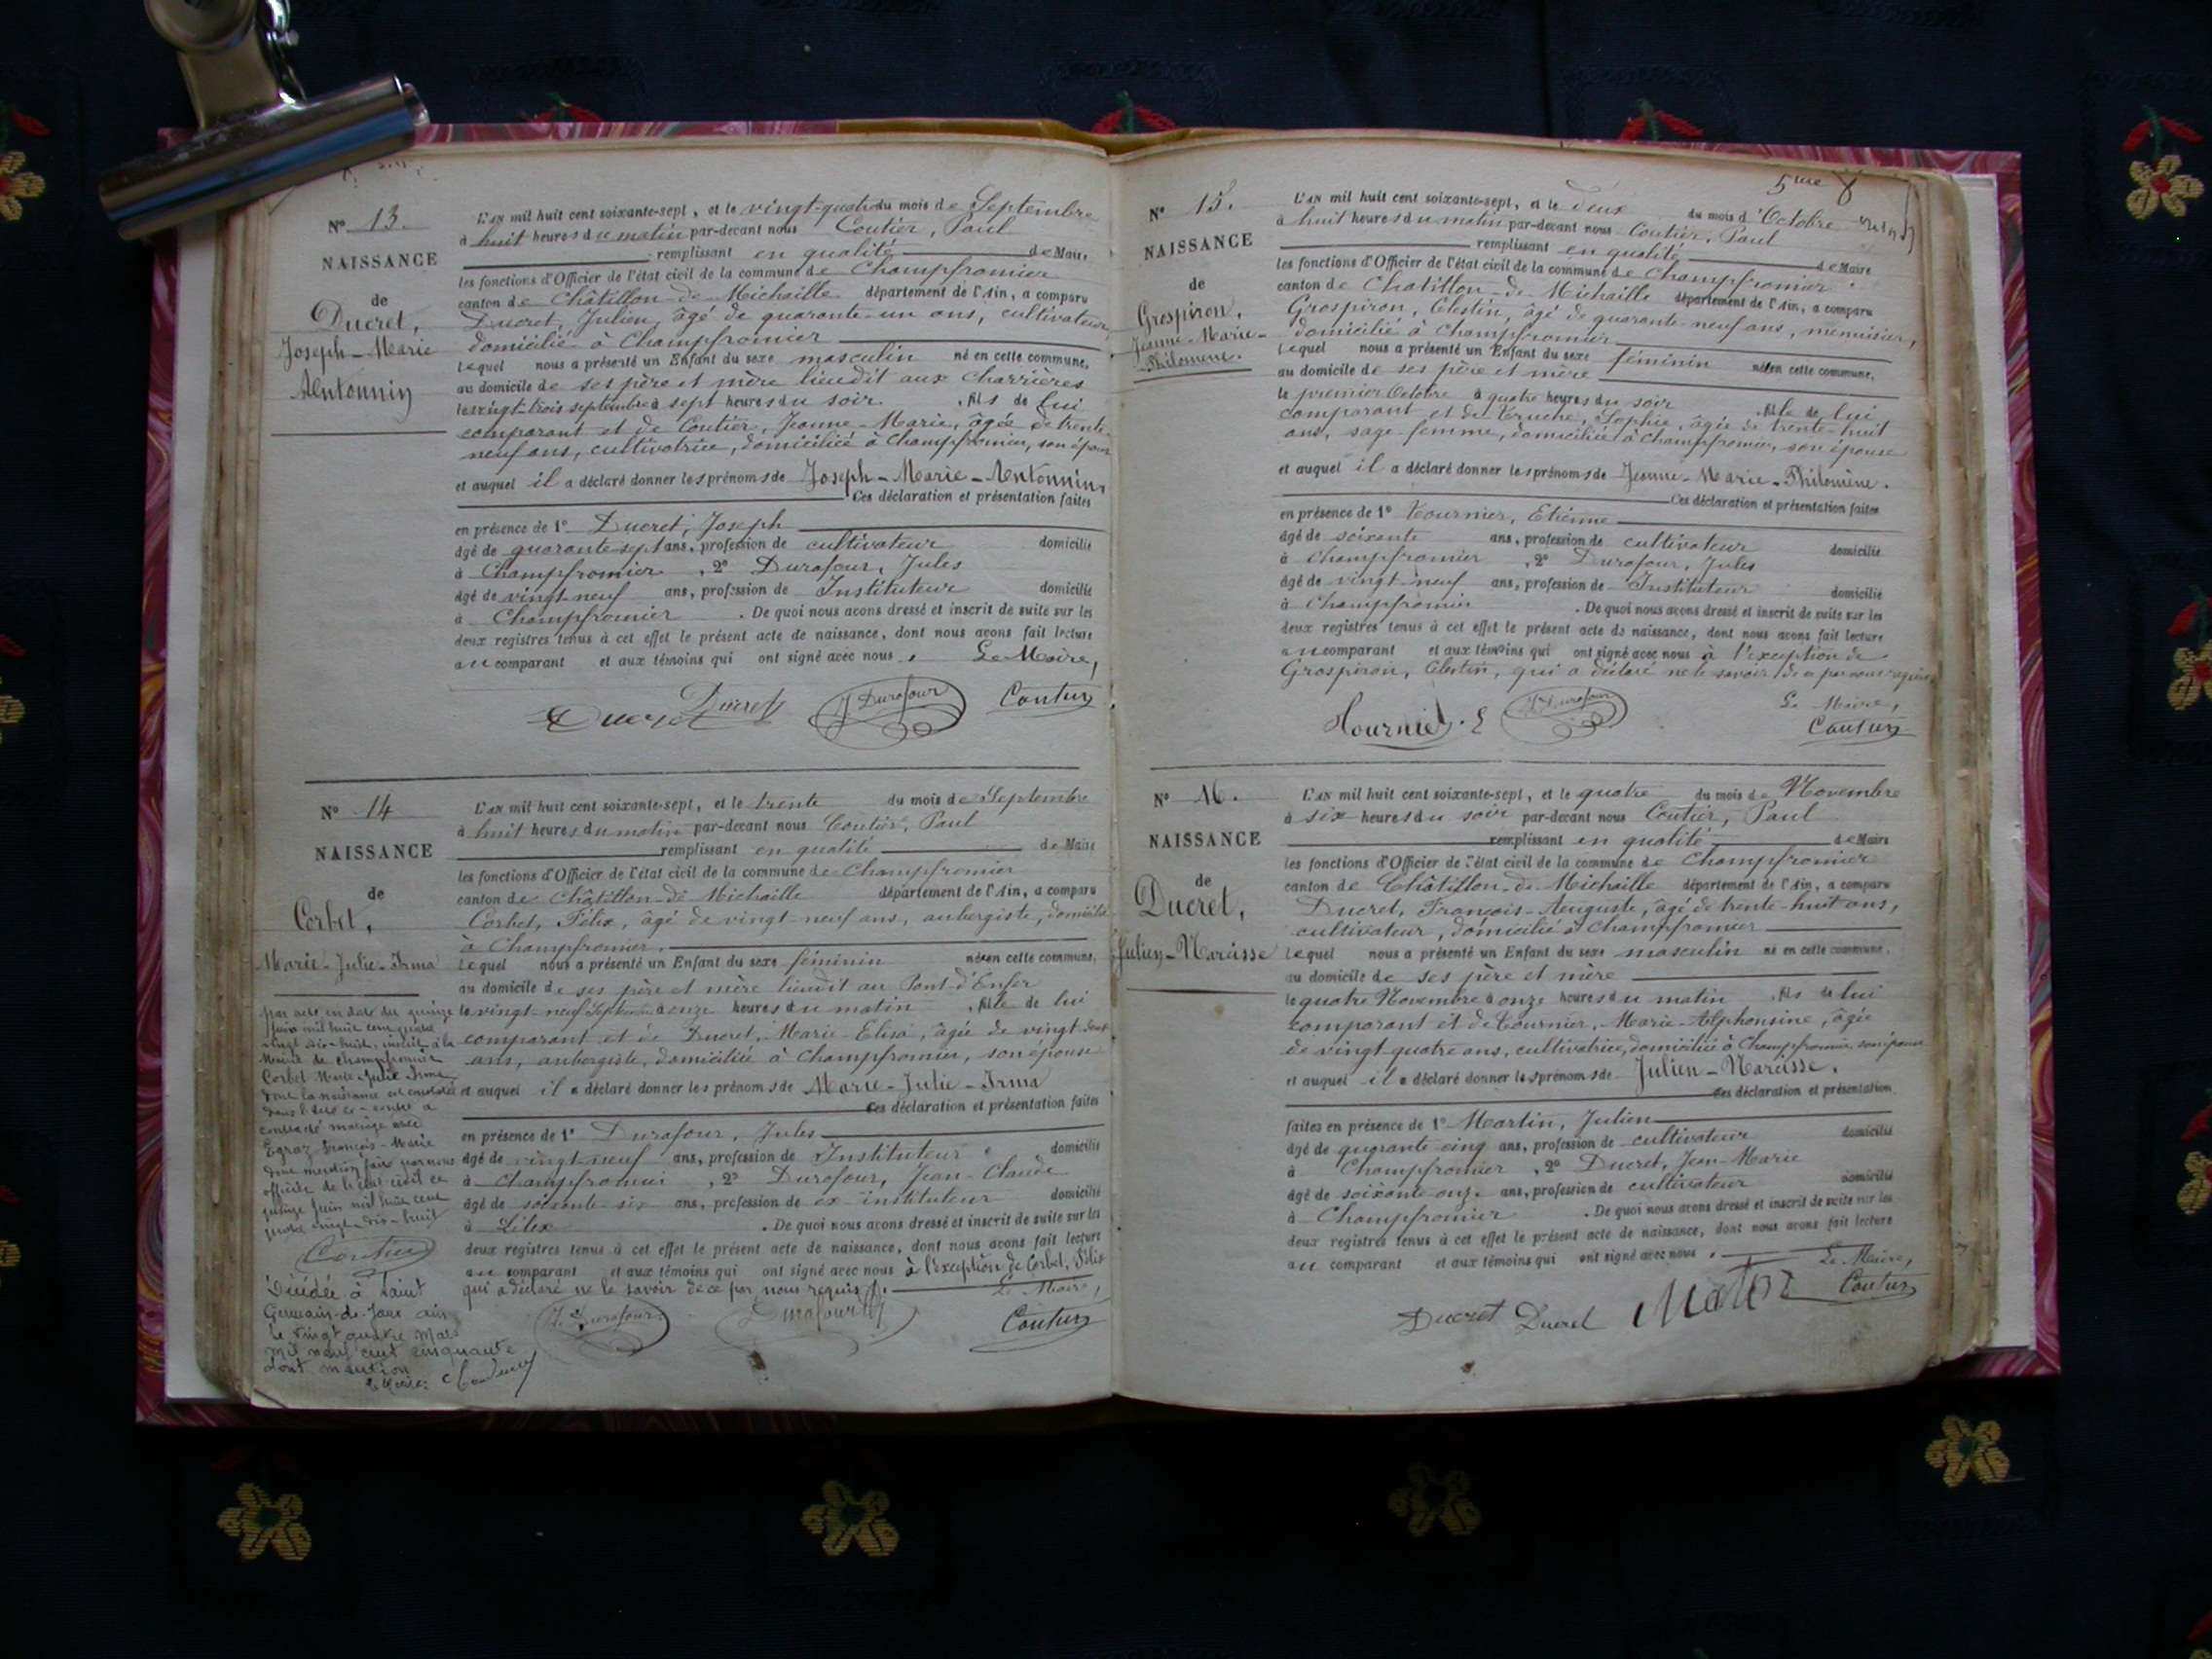 N° 13.
NAISSANCE
de
Ducret,
Joseph-Marie
Antonnin
L'AN mil huit cent soixante-sept, et le vingt-quatre du mois de Septembre
à huit heures du matin par-devant nous Coutier, Paul
remplissant en qualité de Maire
les fonctions d'Officier de l'état civil de la commune de Champfromier
canton de Châtillon-de-Michaille département de l'Ain, a comparu
Ducret, Julien, âgé de quarante-un ans, cultivateur,
domicilié à Champfromier
lequel nous a présenté un Enfant du sexe masculin né en cette commune,
au domicile de ses père et mère lieudit aux Charrières
le vingt-trois septembre à sept heures du soir. , fils de lui
comparant et de Coutier, Jeanne-Marie, âgée de trente-
neuf ans, cultivatrice, domiciliée à Champfromier, son épouse
et auquel il a déclaré donner les prénoms de Joseph-Marie-Antonnin.
Ces déclaration et présentation faites
en présence de 1° Ducret, Joseph
âgé de quarante-sept ans, profession de cultivateur domicilié
à Champfromier , 2° Durafour, Jules
âgé de vingt-neuf ans, profession de Instituteur domicilié
à Champfromier . De quoi nous avons dressé et inscrit de suite sur les
deux registres tenus à cet effet le présent acte de naissance, dont nous avons fait lecture
au comparant et aux témoins qui ont signé avec nous . Le Maire,
Ducret Ducret J Durafour Coutier
N° 14
NAISSANCE
de
Corbet,
Marie-Julie-Irma
L'AN mil huit cent soixante-sept, et le trente du mois de Septembre
à huit heures du matin par-devant nous Coutier, Paul
remplissant en qualité de Maire
les fonctions d'Officier de l'état civil de la commune de Champfromier
canton de Châtillon-de-Michaille département de l'Ain, a comparu
Corbet, Félix, âgé de vingt-neuf ans, aubergiste, domicilié
à Champfromier,
lequel nous a présenté un Enfant du sexe féminin née en cette commune,
au domicile de ses père et mère lieudit au Pont-d'Enfer
le vingt-neuf Septembre à onze heures du matin , fille de lui
comparant et de Ducret, Marie-Elisa, âgée de vingt-sept
ans, aubergiste, domiciliée à Champfromier, son épouse
et auquel il a déclaré donner les prénoms de Marie-Julie-Irma
Ces déclaration et présentation faites
en présence de 1° Durafour, Jules
âgé de vingt-neuf ans, profession de Instituteur domicilié
à Champfromier , 2° Durafour, Jean-Claude
âgé de soixante-six ans, profession de ex instituteur domicilié
à Lélex . De quoi nous avons dressé et inscrit de suite sur les
deux registres tenus à cet effet le présent acte de naissance, dont nous avons fait lecture
au comparant et aux témoins qui ont signé avec nous à l'exception de Corbet, Félix
qui a déclaré ne le savoir de ce par nous requis. Le Maire,
J. Durafour Durafour Coutier
par acte en date du quinze
Juin mil huit cent quatre
vingt dix-huit, inscrit à la
Mairie de Champfromier
Corbet Marie Julie Irma
dont la naissance est constatée
dans l'acte ci-contre a
contracté mariage avec
Egraz François-Marie
dont mention faite par nous
officier de l'état civil ce
quinze Juin mil huit cent
quatre vingt-dix-huit
Coutier
Décédée à Saint
Germain-de-Joux ain
le vingt quatre mars
mil neuf cent cinquante
dont mention
le Maire:
5me
N° 15.
NAISSANCE
de
Grospiron,
Jeanne-Marie-
Philomène.
L'AN mil huit cent soixante-sept, et le deux du mois d'Octobre
à huit heures du matin par-devant nous Coutier, Paul
remplissant en qualité de Maire
les fonctions d'Officier de l'état civil de la commune de Champfromier
canton de Châtillon-de-Michaille département de l'Ain, a comparu
Grospiron, Célestin, âgé de quarante-neuf ans, menuisier,
domicilié à Champfromier
lequel nous a présenté un Enfant du sexe féminin née en cette commune,
au domicile de ses père et mère
le premier Octobre à quatre heures du soir , fille de lui
comparant et de Truche, Sophie, âgée de trente-huit
ans, sage-femme, domiciliée à Champfromier, son épouse
et auquel il a déclaré donner les prénoms de Jeanne-Marie-Philomène.
Ces déclaration et présentation faites
en présence de 1° Tournier, Etienne
âgé de soixante ans, profession de cultivateur domicilié
à Champfromier , 2° Durafour, Jules
âgé de vingt-neuf ans, profession de Instituteur domicilié
à Champfromier . De quoi nous avons dressé et inscrit de suite sur les
deux registres tenus à cet effet le présent acte de naissance, dont nous avons fait lecture
au comparant et aux témoins qui ont signé avec nous à l'exception de
Grospiron, Célestin, qui a déclaré ne le savoir de ce par nous requis.
Le Maire,
Tournier. E J. Durafour Coutier
N° 16.
NAISSANCE
de
Ducret,
Julien-Narcisse
L'AN mil huit cent soixante-sept, et le quatre du mois de Novembre
à six heures du soir par-devant nous Coutier, Paul
remplissant en qualité de Maire
les fonctions d'Officier de l'état civil de la commune de Champfromier
canton de Châtillon-de-Michaille département de l'Ain, a comparu
Ducret, François-Auguste, âgé de trente-huit ans,
cultivateur, domicilié à Champfromier
lequel nous a présenté un Enfant du sexe masculin né en cette commune,
au domicile de ses père et mère
le quatre Novembre à onze heures du matin , fils de lui
comparant et de Tournier, Marie-Alphonsine, âgée
de vingt-quatre ans, cultivatrice, domiciliée à Champfromier, son épouse
et auquel il a déclaré donner les prénoms de Julien-Narcisse.
Ces déclaration et présentation
faites en présence de 1° Martin, Julien
âgé de quarante-cinq ans, profession de cultivateur domicilié
à Champfromier , 2° Ducret, Jean-Marie
âgé de soixante-onze ans, profession de cultivateur domicilié
à Champfromier . De quoi nous avons dressé et inscrit de suite sur les
deux registres tenus à cet effet le présent acte de naissance, dont nous avons fait lecture
au comparant et aux témoins qui ont signé avec nous . Le Maire,
Ducret Ducret Coutier